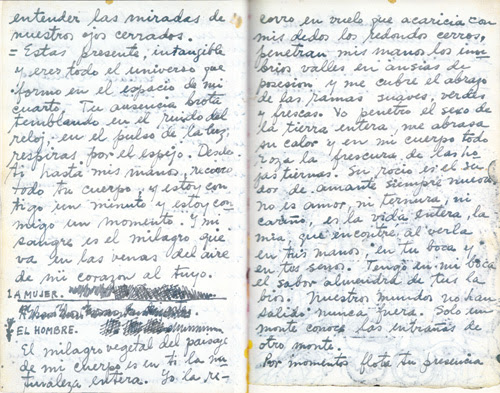 entender las miradas de
nuestros ojos cerrados.
= Estas presente, intangible
y eres todo el universo que
formo en el espacio de mi
cuarto. Tu ausencia brota
temblando en el ruido del
reloj, en el pulso de la luz,
respiras por el espejo. Desde
ti hasta mis manos, recorro
todo tu cuerpo, y estoy con
tigo un minuto y estoy con
migo un momento. Y mi
sangre es el milagro que
va en las venas del aire
de mi corazón al tuyo.
LA MUJER.
EL HOMBRE.
El milagro vegetal del paisaje
de mi cuerpo es en ti la na
turaleza entera. Yo la re-
corro en vuelo que acaricia con
mis dedos los redondos cerros,
penetran mis manos los um
brios valles en ansias de
posesion y me cubre el abrazo
de las ramas suaves, verdes
y frescas. Yo penetro el sexo de
la tierra entera, me abrasa
su calor y en mi cuerpo todo
roza la frescura de las ho
jas tiernas. Su rocio es el su
dor de amante siempre nuevo.
No es amor, ni ternura, ni
cariño, es la vida entera, la
mia, que encontre al verla
en tus manos, en tu boca y
en tus senos. Tengo en mi boca
el sabor almendra de tus la
bios. Nuestros mundos no han
salido nunca fuera. Solo un
monte conoce las entrañas de
otro monte.
Por momentos flota tu presencia